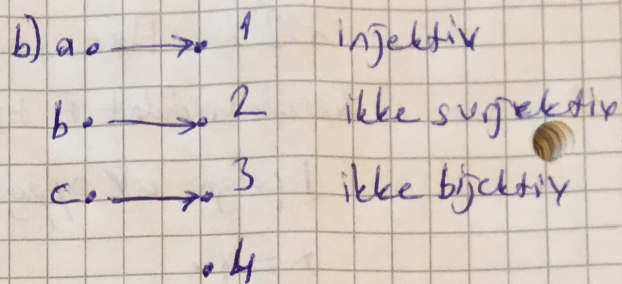 b) a. → . 1 injektiv
b. → . 2 ikke surjektiv
c. → . 3 ikke bijektiv
. 4